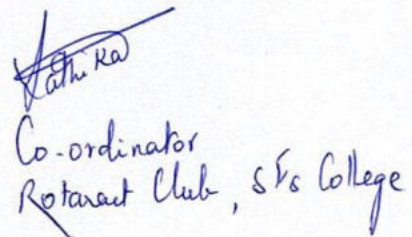 Co-ordinator
Rotaract Club, SFS College